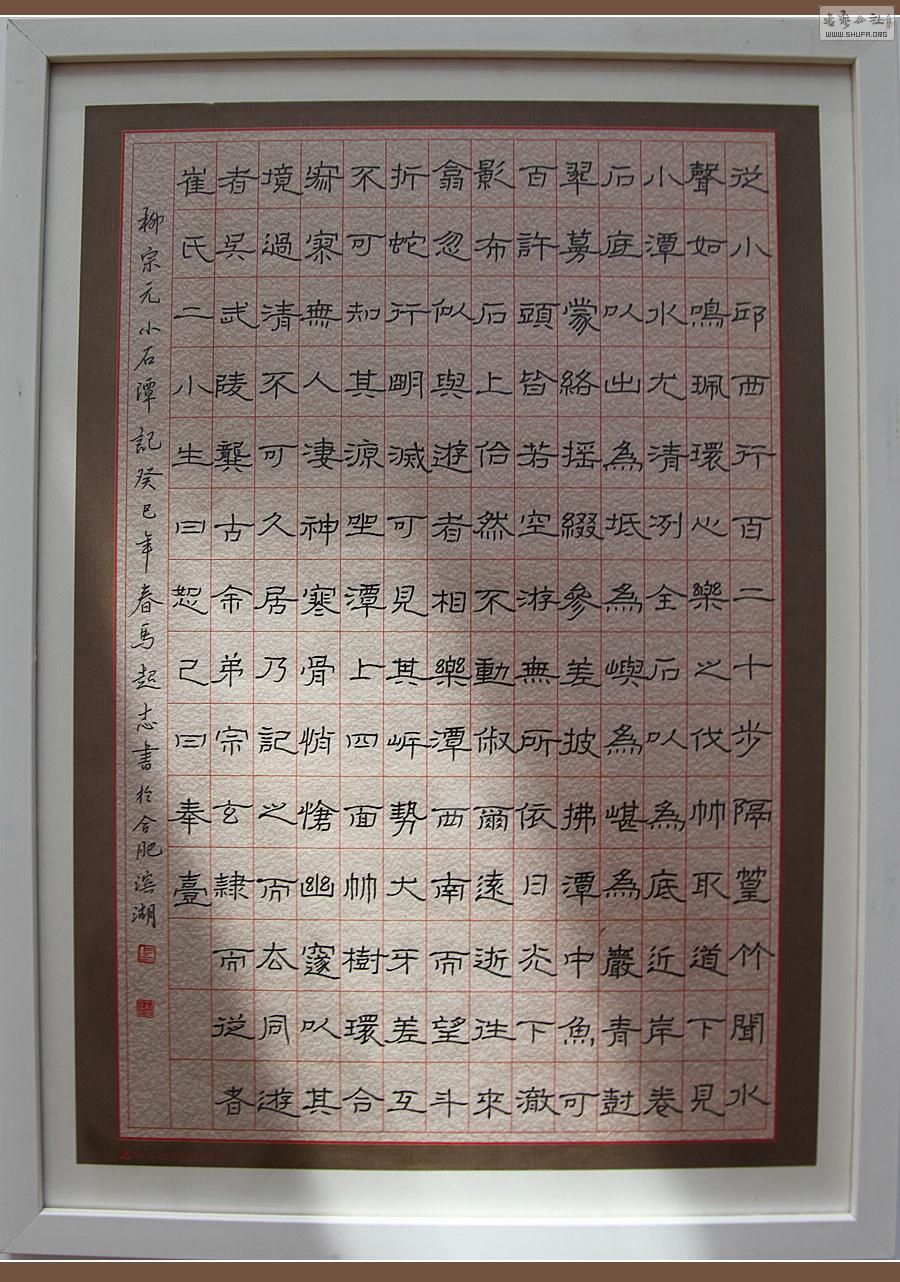 從小邱西行百二十步隔篁竹聞水
聲如鳴珮環心樂之伐竹取道下見
小潭水尤清冽全石以為底近岸卷
石底以出為坻為嶼為嵁為巖青樹
翠蔓蒙絡摇綴參差披拂潭中魚可
百許頭皆若空游無所依日光下澈
影布石上佁然不動俶爾遠逝往來
翕忽似與遊者相樂潭西南而望斗
折蛇行明滅可見其岸勢犬牙差互
不可知其源坐潭上四面竹樹環合
寂寥無人凄神寒骨悄愴幽邃以其
境過清不可久居乃記之而去同遊
者吴武陵龔古余弟宗玄隸而從者
崔氏二小生曰恕己曰奉壹
柳宗元小石潭記癸巳年春馬起志書於合肥滨湖
書藝公社
WWW.SHUFA.ORG